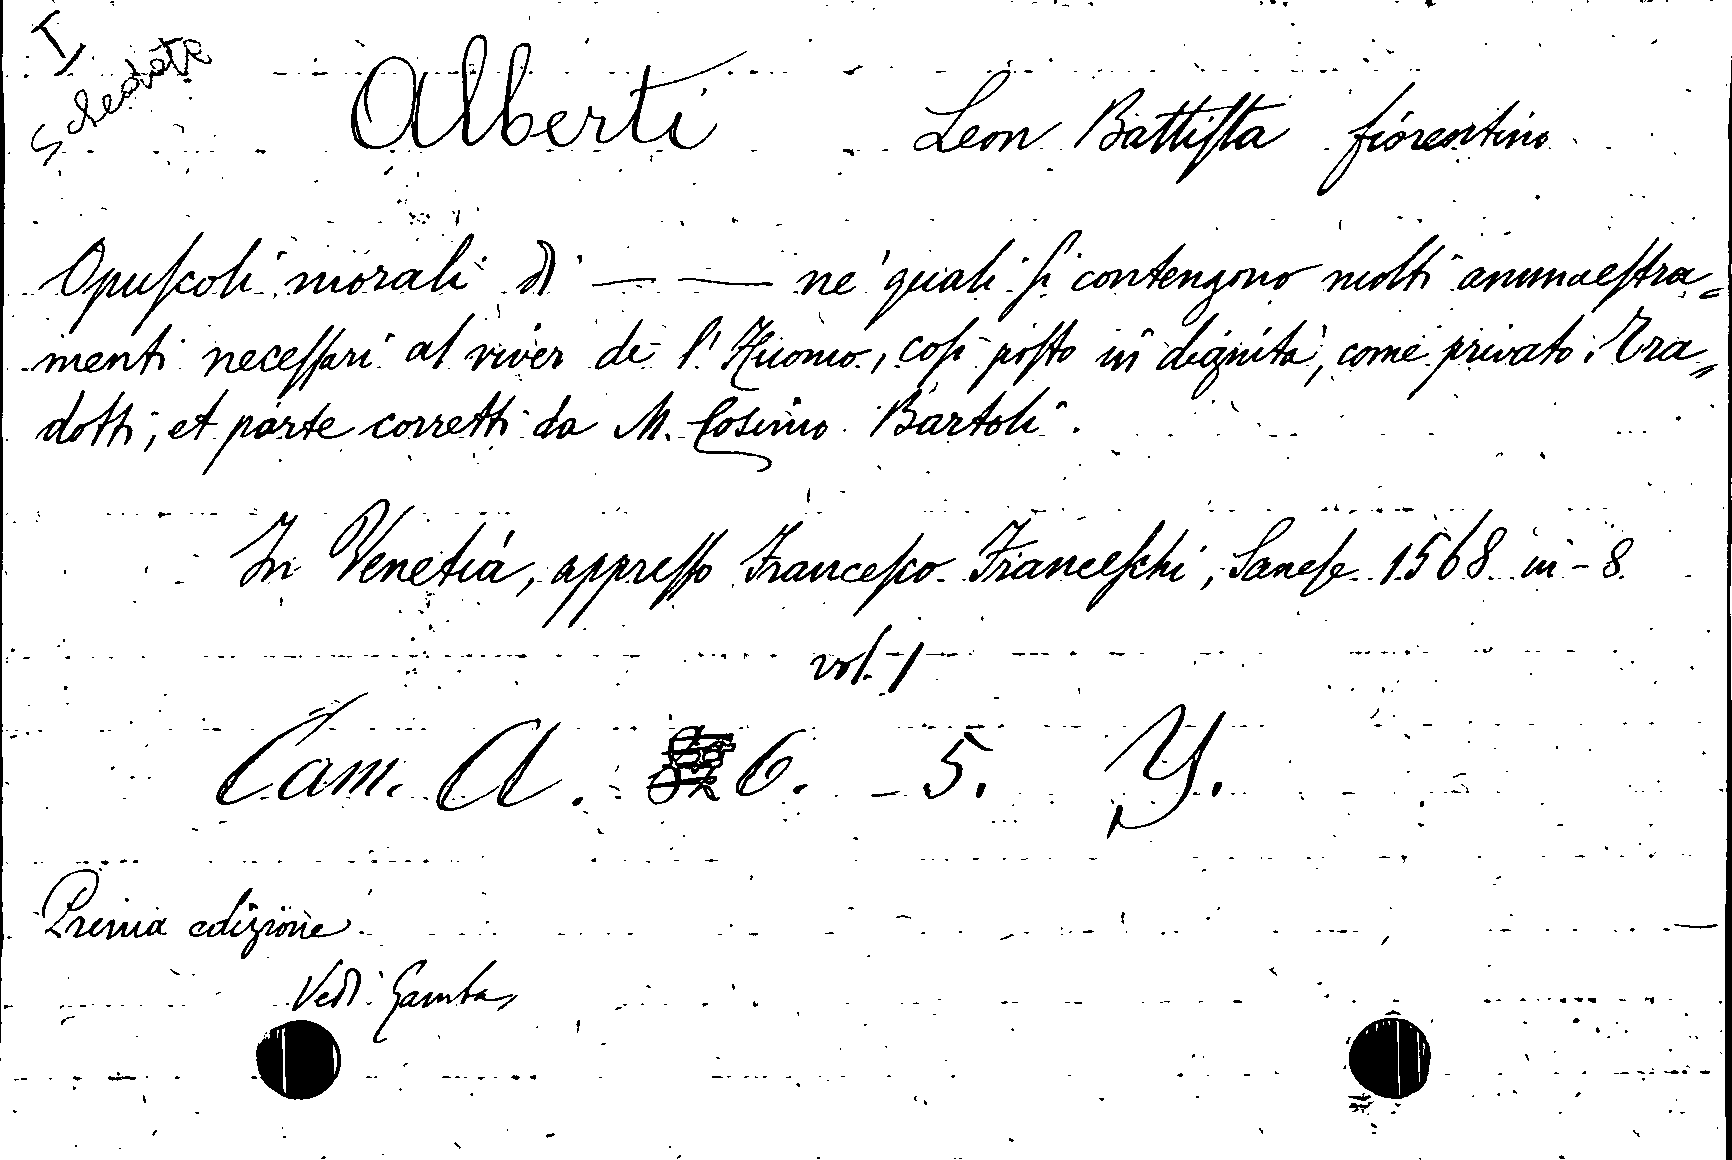 I
Schedato
Alberti Leon Battiſta fiorentino
Opuſcoli morali di — — ne' quali ſi contengono molti ammaeſtra=
menti neceſſari al viver de l'Huomo, coſi poſto in dignità, come privato. Tra=
dotti, et parte corretti da M. Cosimo Bartoli.
In Venetia, appreſſo Franceſco Franceſchi, Saneſe 1568 in-8
vol. 1
Cam. A. 6. 5. Y.
Prima edizione
Vedi Gamba